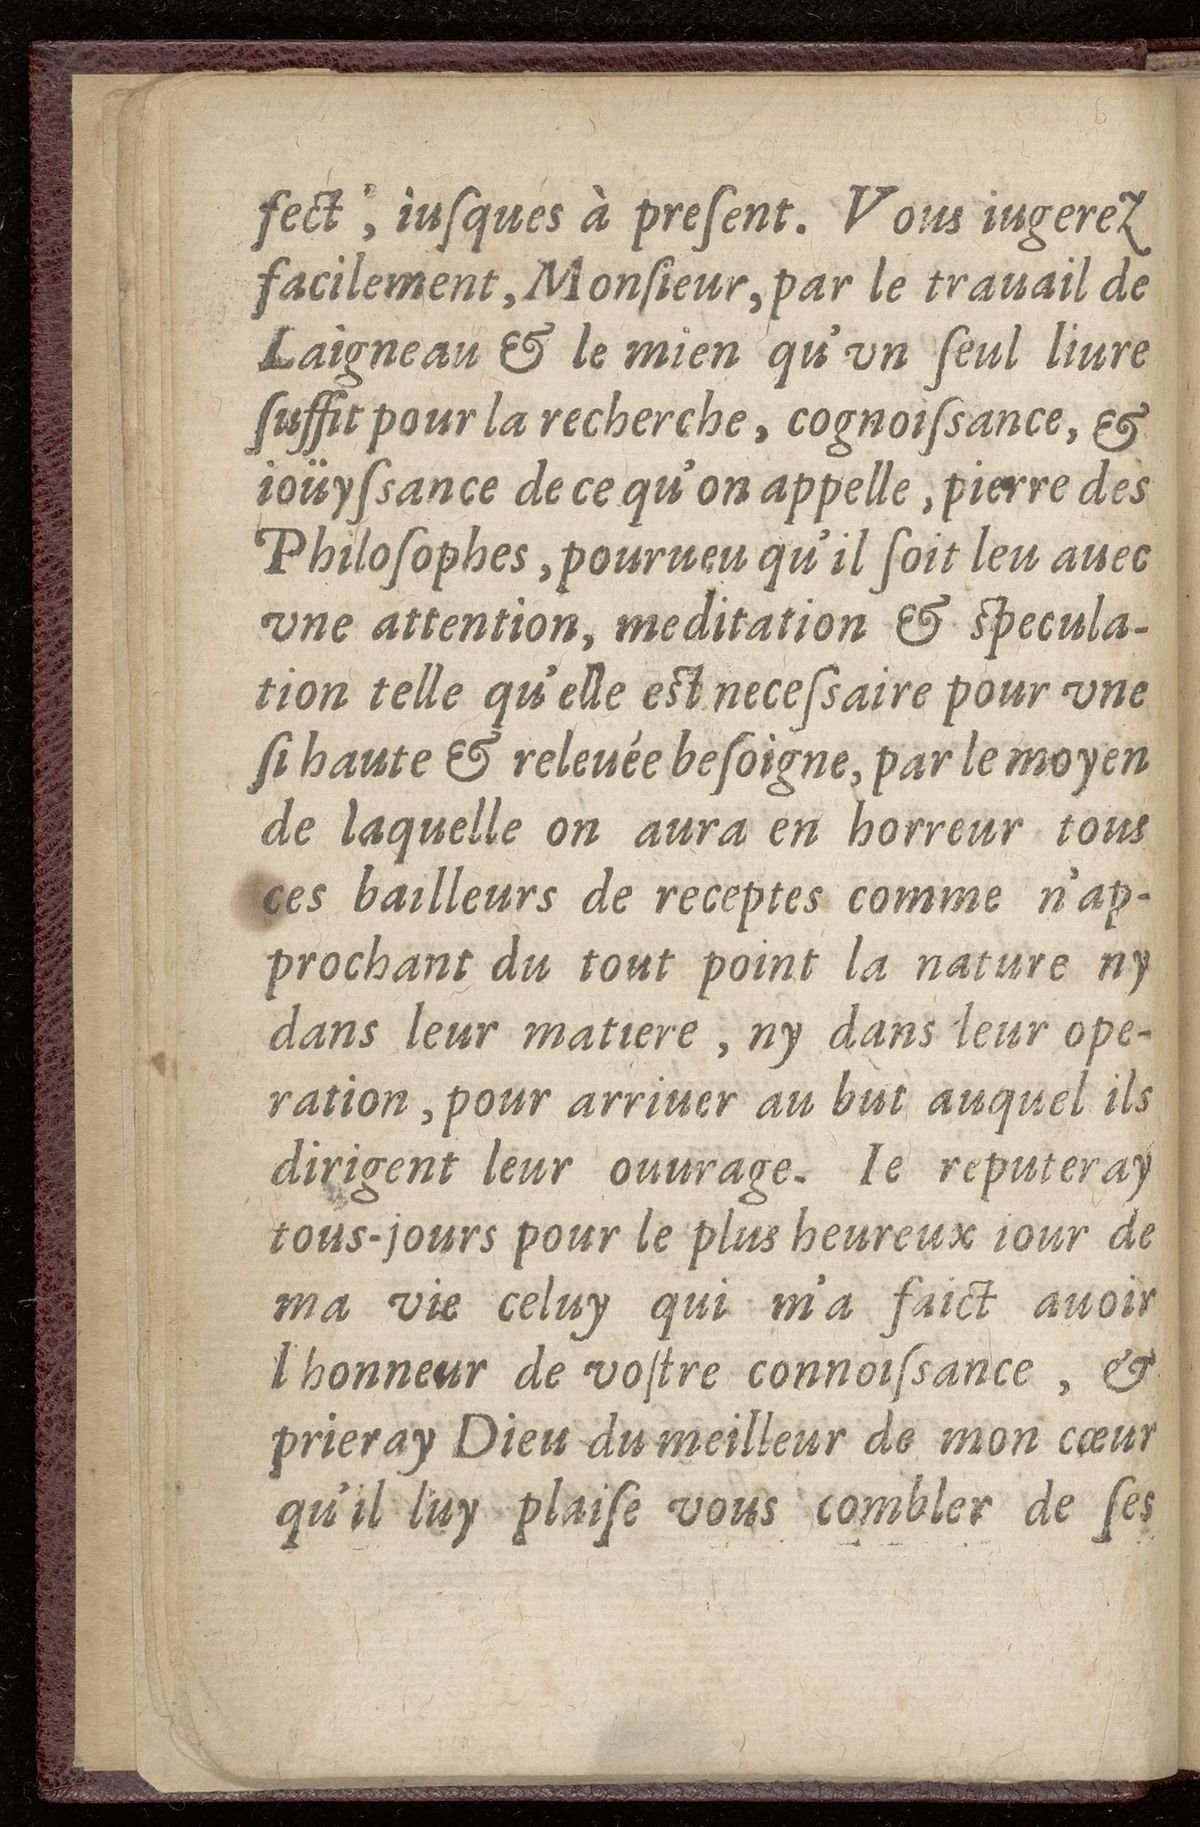 fect, iuſques à preſent. Vous iugerez
facilement, Monſieur, par le trauail de
Laigneau & le mien qu'vn ſeul liure
ſuffit pour la recherche, cognoiſsance, &
ioüyſsance de ce qu'on appelle, pierre des
Philoſophes, pourueu qu'il ſoit leu auec
vne attention, meditation & ſpecula-
tion telle qu'elle eſt neceſsaire pour vne
ſi haute & releuée beſoigne, par le moyen
de laquelle on aura en horreur tous
ces bailleurs de receptes comme n'ap-
prochant du tout point la nature ny
dans leur matiere, ny dans leur ope-
ration, pour arriuer au but auquel ils
dirigent leur ouurage. Ie reputeray
tous-jours pour le plus heureux iour de
ma vie celuy qui m'a faict auoir
l honneur de voſtre connoiſsance, &
prieray Dieu du meilleur de mon cœur
qu'il luy plaiſe vous combler de ſes